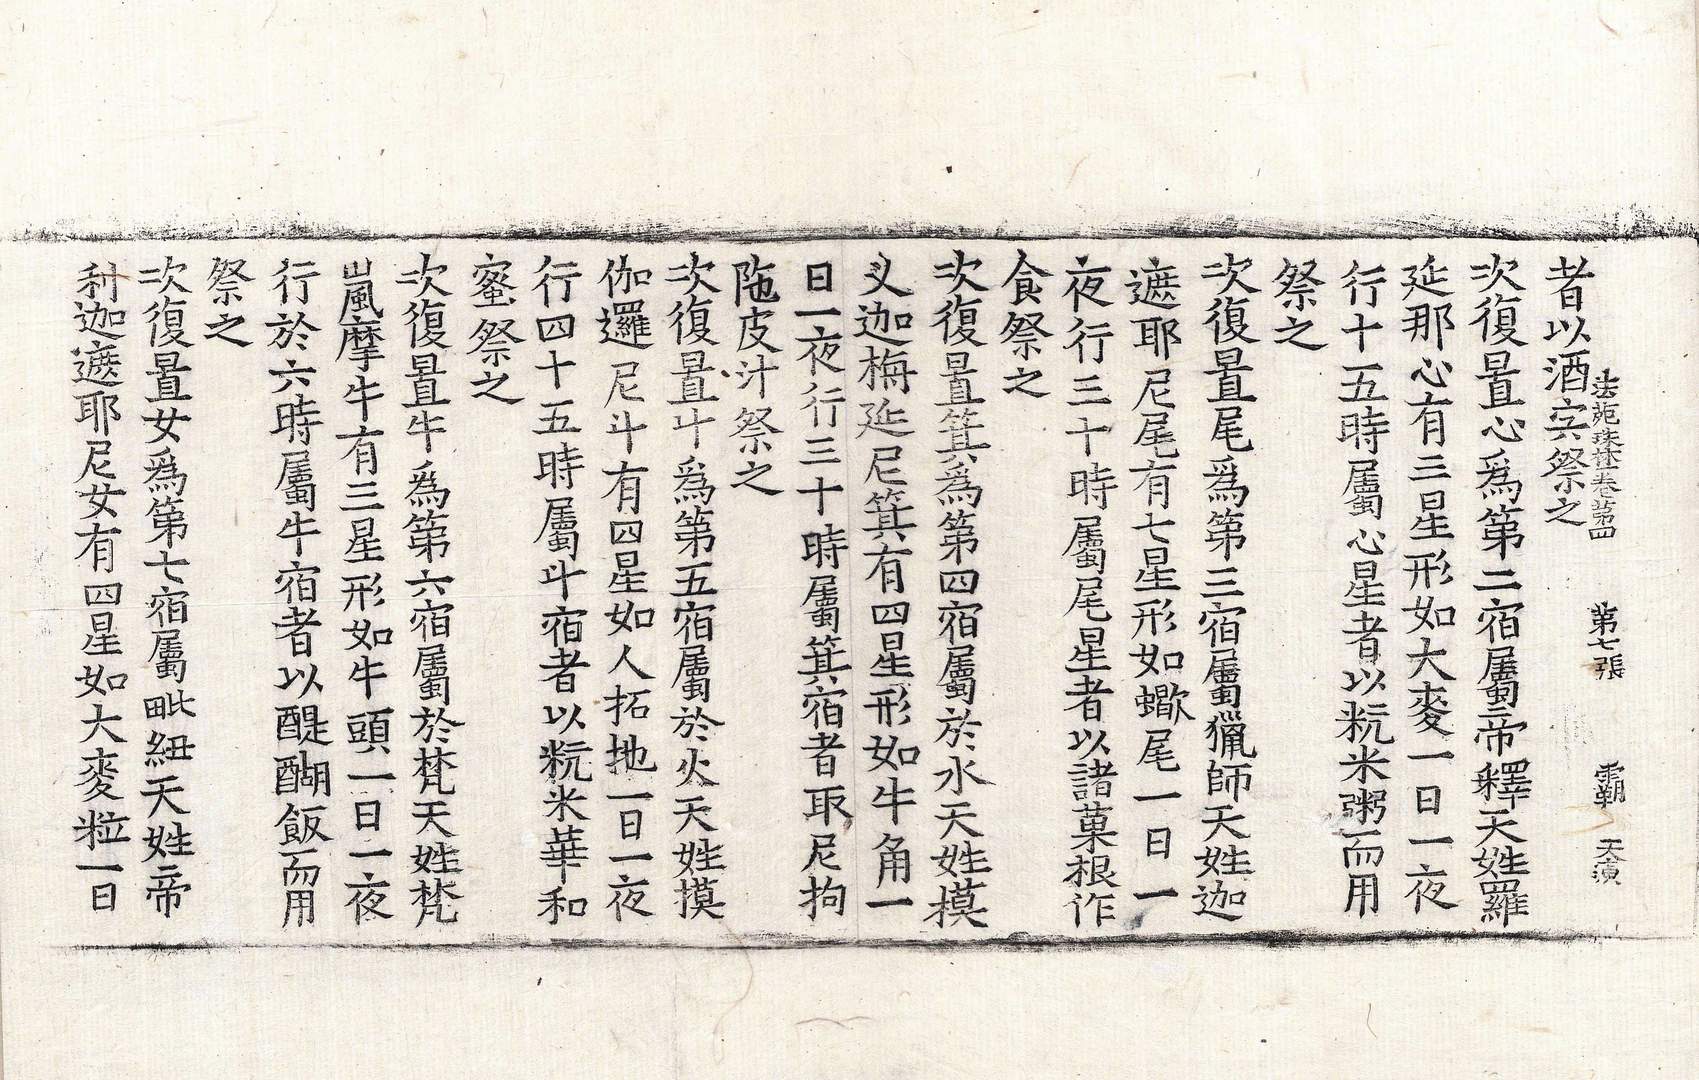 法苑珠林卷第四 第七張 霸 天演
者以酒宍祭之
次復置心爲第二宿屬帝釋天姓羅
延那心有三星形如大麥一日一夜
行十五時屬心星者以粇米粥而用
祭之
次復置尾爲第三宿屬獵師天姓迦
遮耶尼尾有七星形如蠍尾一日一
夜行三十時屬尾星者以諸菓根作
食祭之
次復置箕爲第四宿屬於水天姓摸
叉迦栴延尼箕有四星形如牛角一
日一夜行三十時屬箕宿者取尼拘
陁皮汁祭之
次復置斗爲第五宿屬於火天姓摸
伽邏尼斗有四星如人拓地一日一夜
行四十五時屬斗宿者以粇米華和
蜜祭之
次復置牛爲第六宿屬於梵天姓梵
嵐摩牛有三星形如牛頭一日一夜
行於六時屬牛宿者以醍醐飯而用
祭之
次復置女爲第七宿屬毗紐天姓帝
利迦遮耶尼女有四星如大麥粒一日